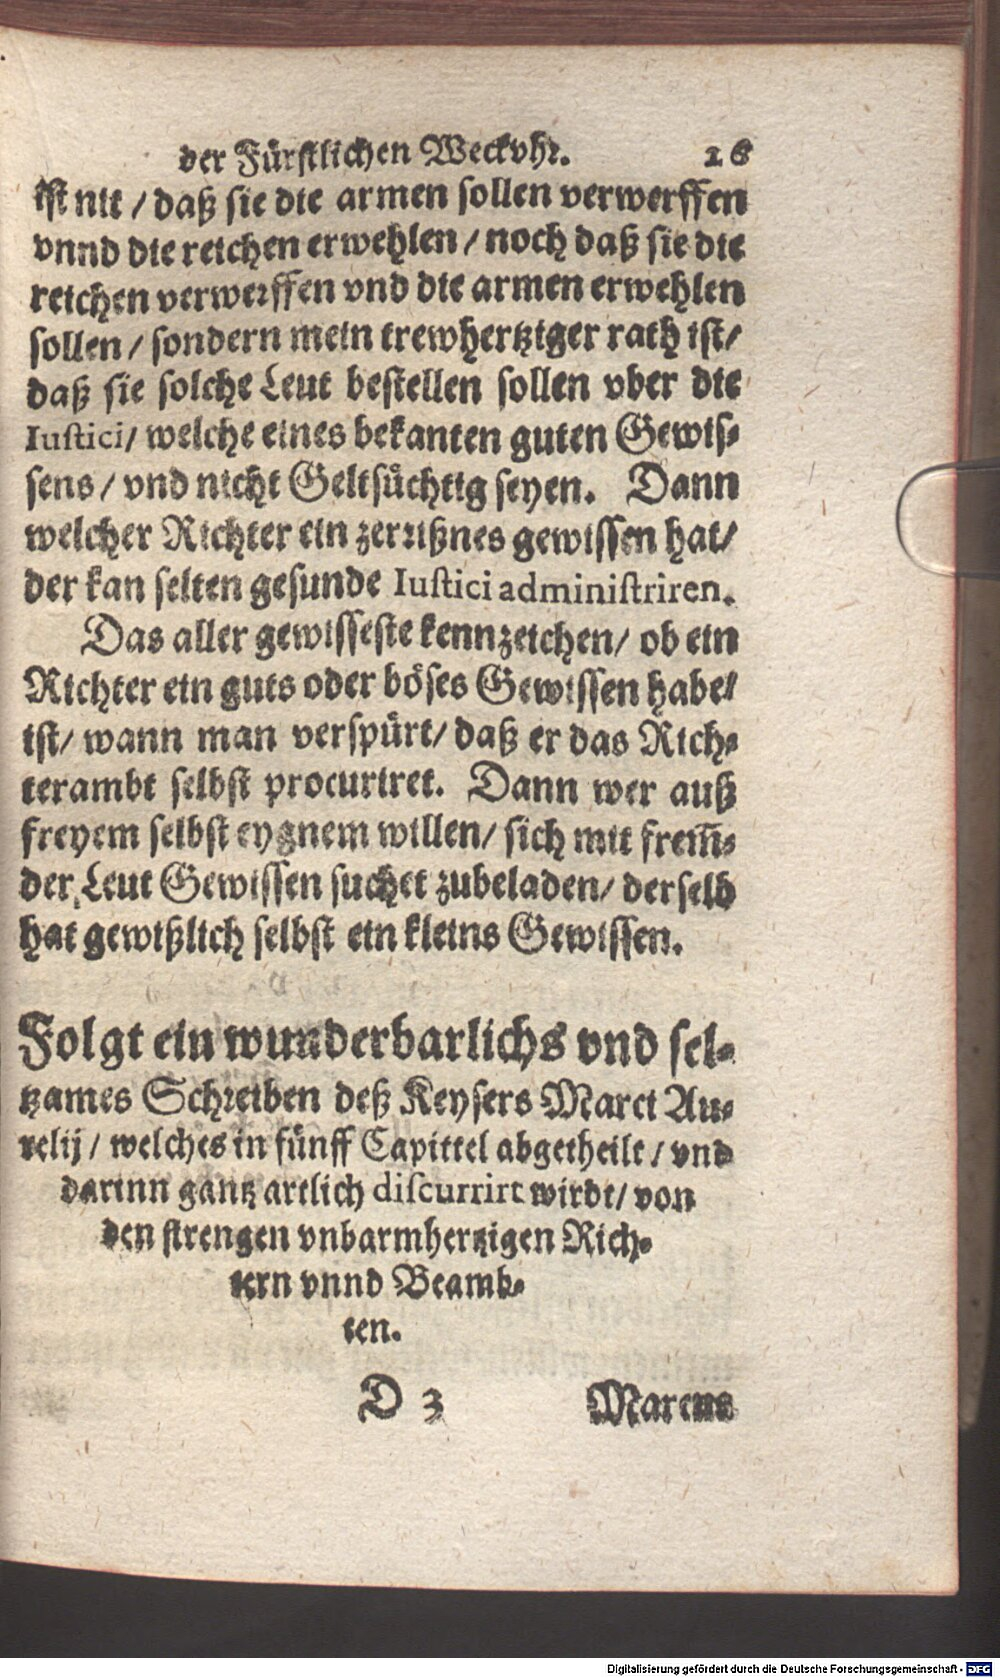 der Fürstlichen Weckvhr. 26
ist nit / daß sie die armen sollen verwerffen
vnnd die reichen erwehlen / noch daß sie die
reichen verwerffen vnd die armen erwehlen
sollen / sondern mein trewhertziger rath ist /
daß sie solche Leut bestellen sollen vber die
Iustici / welche eines bekanten guten Gewis-
sens / vnd nicht Geltsüchtig seyen. Dann
welcher Richter ein zerrißnes gewissen hat /
der kan selten gesunde Iustici administriren.
Das aller gewisseste kennzeichen / ob ein
Richter ein guts oder böses Gewissen habe /
ist / wann man verspürt / daß er das Rich-
terambt selbst procuriret. Dann wer auß
freyem selbst eygnem willen / sich mit frem̃-
der Leut Gewissen suchet zubeladen / derselb
hat gewißlich selbst ein kleins Gewissen.
Folgt ein wunderbarlichs vnd sel-
tzames Schreiben deß Keysers Marci Au-
relij / welches in fünff Capittel abgetheilt / vnd
darinn gantz artlich discurrirt wirdt / von
den strengen vnbarmhertzigen Rich-
tern vnnd Beamb-
ten.
D 3 Marcus
Digitalisierung gefördert durch die Deutsche Forschungsgemeinschaft - DFG